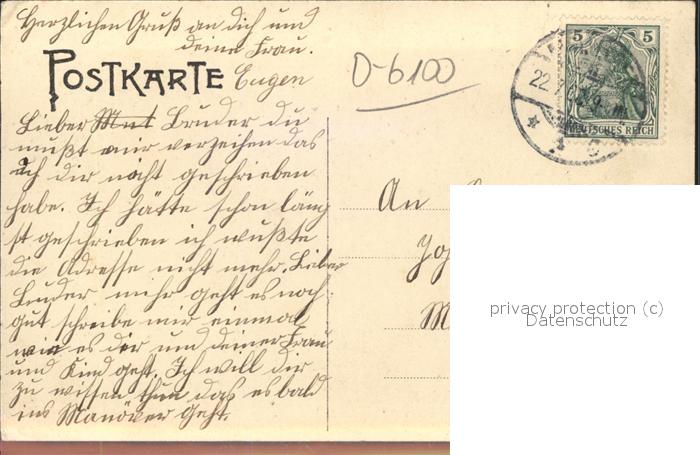 Herzlichen Gruß an dich und
deine Frau.
POSTKARTE Eugen
D-6100
5 5
22.
DEUTSCHES REICH
Lieber Bruder du
mußt mir verzeihen das
ich dir nicht geschrieben
habe. Ich hätte schon läng
st geschrieben ich wußte
die Adresse nicht mehr. Lieber
Bruder mihr geht es noch
gut schreibe mir einmal
wie es dir und deiner Frau
und Kind geht. Ich will dir
zu wissen thun das es bald
ins Manöver geht.
An
Joh
M
privacy protection (c)
Datenschutz